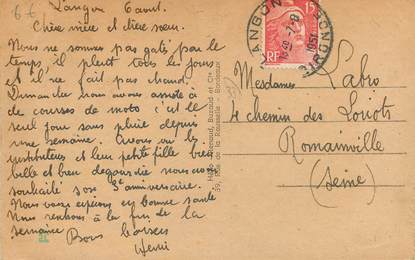 6€
Langon 6 aout.
Chère mère et chère sœur.
Nous ne sommes pas gaté par le
temps, il pleut tous les jours
et il ne fait pas chaud.
Dimanche nous avons assisté à
de courses de motos c'est le
seul jour sans pluie depuis
une semaine. Avons vu les
instituteurs et leur petite fille bien
belle et bien degourdie nous avons
souhaité son 3e anniversaire.
Nous vous espérons en bonne santé
Nous rentrons à la fin de la
semaine
Bons baisers
Henri
39, Rue de la Rousselle - Bordeaux
LANGON
GIRONDE
1951
15
RF
Mesdames Labro
4 chemin des Loriots
Romainville
(Seine)